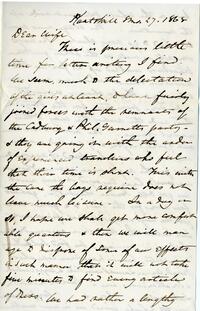 Dear Wife
There is precious little
time for letter writing I find.
We have, much to the delectation
of the girls at least, fairly
joined forces with the remnants
of the Cadbury & Phil. Garrett party &
they are going on with the ardor
of experienced travelers who feel
that their time is short. This with
the care the bags require does not
leave much leisure. In a day or
so I hope we shall get more comfort
able quarters & then we will man
age to dispose of some of our effects
in such manner that it will not take
five minutes to find every article
of dress. We had rather a lengthy